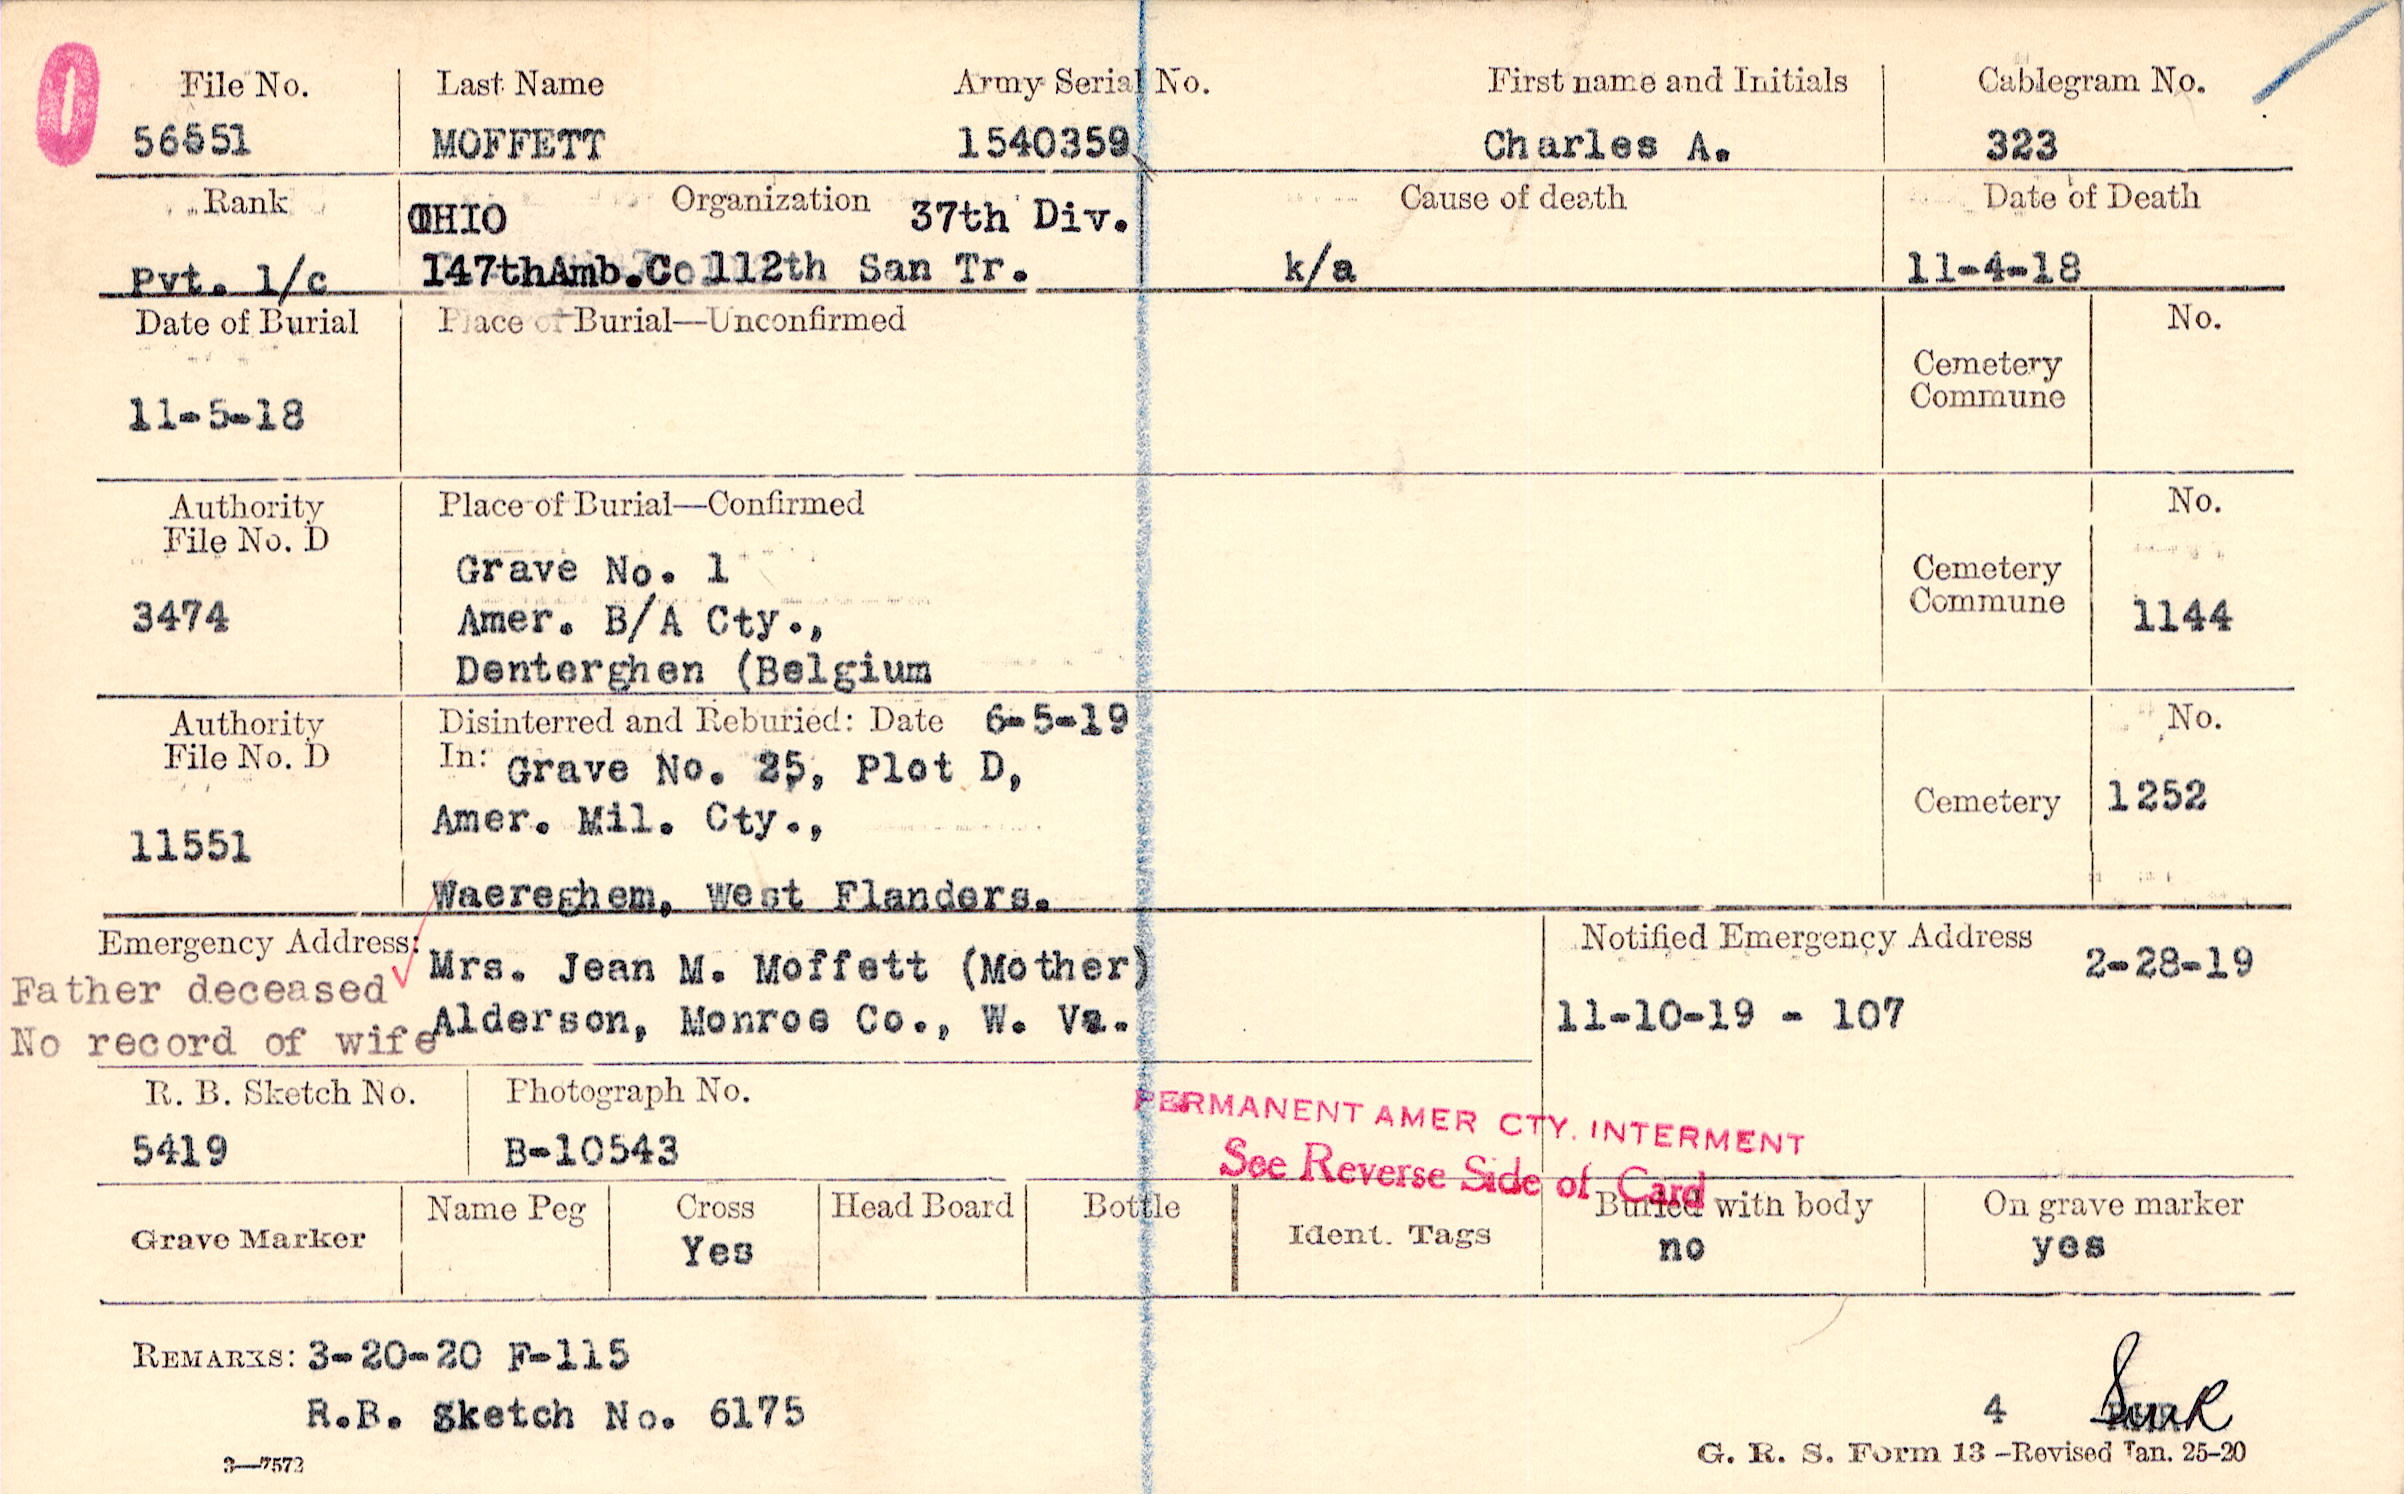 0
File No. Last Name Army Serial No. First name and Initials Cablegram No.
56551 MOFFETT 1540359 Charles A. 323
Rank OHIO Organization 37th Div. Cause of death Date of Death
Pvt. 1/c 147thAmb.Co 112th San Tr. k/a 11-4-18
Date of Burial Place of Burial—Unconfirmed No.
Cemetery
Commune
11-5-18
Authority Place of Burial—Confirmed No.
File No. D
Grave No. 1 Cemetery
3474 Amer. B/A Cty., Commune 1144
Denterghen (Belgium
Authority Disinterred and Reburied: Date 6-5-19 No.
File No. D In: Grave No. 25, Plot D,
Amer. Mil. Cty., Cemetery 1252
11551
Waereghem, West Flanders.
Emergency Address: Mrs. Jean M. Moffett (Mother) Notified Emergency Address 2-28-19
Father deceased
No record of wife Alderson, Monroe Co., W. Va. 11-10-19 - 107
R. B. Sketch No. Photograph No.
5419 B-10543
PERMANENT AMER CTY. INTERMENT
See Reverse Side of Card
Grave Marker Name Peg Cross Head Board Bottle Ident. Tags Buried with body On grave marker
Yes no yes
REMARKS: 3-20-20 F-115
R.B. Sketch No. 6175 4
3—7572 G. R. S. Form 13 –Revised Jan. 25-20